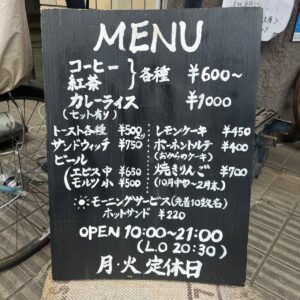 MENU
コーヒー
紅茶 } 各種 ¥600〜
カレーライス ¥1000
(セット有り)
トースト各種 ¥500
サンドウィッチ ¥750
ビール
エビス中 ¥650
モルツ小 ¥500
レモンケーキ ¥450
ポーネントルテ ¥400
(おからのケーキ)
焼きりんご ¥700
(10月中旬〜2月末)
モーニングサービス(先着10数名)
ホットサンド ¥220
OPEN 10:00〜21:00
(L.O 20:30)
月・火 定休日